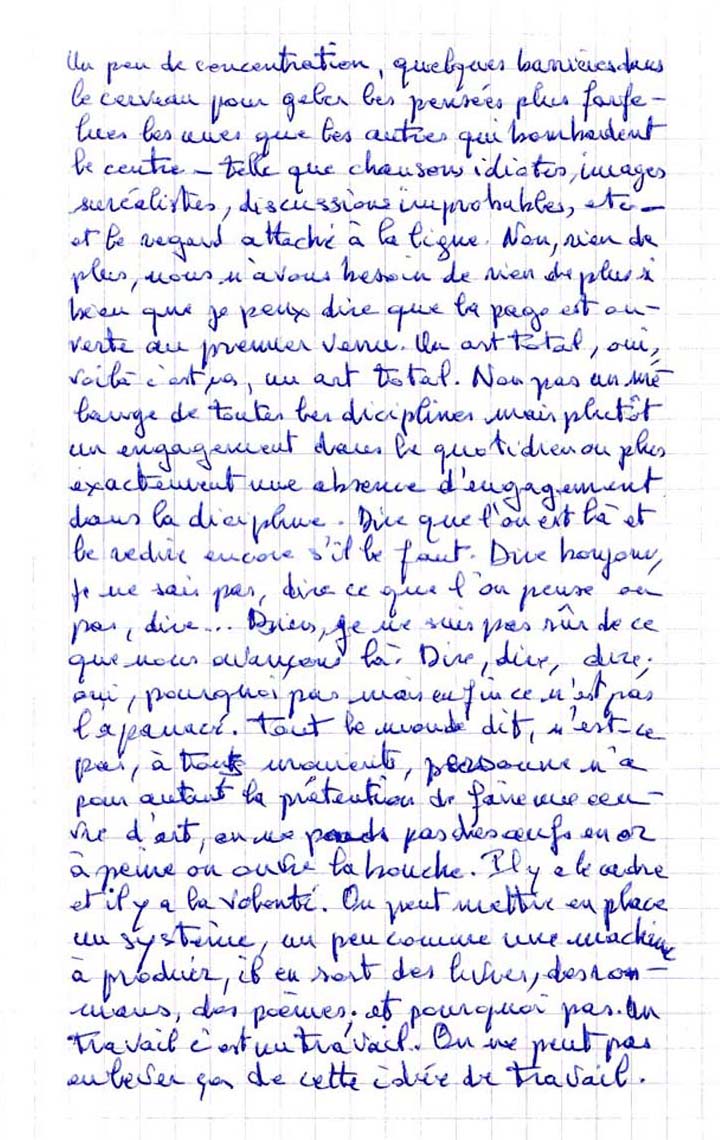 Un peu de concentration, quelques barrières dans
le cerveau pour geler les pensées plus farfe-
lues les unes que les autres qui bombardent
le centre - telle que chansons idiotes, images
suréalistes, discussions improbables, etc -
et le regard attaché à la ligne. Non, rien de
plus, nous n'avons besoin de rien de plus si
bien que je peux dire que la page est ou-
verte au premier venu. Un art total, oui,
voilà c'est ça, un art total. Non pas un mé
lange de toutes les diciplines mais plutôt
un engagement dans le quotidien ou plus
exactement une absence d'engagement
dans la dicipline. Dire que l'on est là et
le redire encore s'il le faut. Dire bonjour,
je ne sais pas, dire ce que l'on pense ou
pas, dire... Bien, je ne suis pas sûr de ce
que nous avançons là. Dire, dire, dire,
oui, pourquoi pas mais enfin ce n'est pas
la panacé. Tout le monde dit, n'est-ce
pas, à tous moments, personne n'a
pour autant la prétention de faire une oeu-
vre d'art, on ne pond pas des oeufs en or
à peine on ouvre la bouche. Il y a le cadre
et il y a la volonté. On peut mettre en place
un système, un peu comme une machine
à produir, il en sort des livres, des ro-
mans, des poèmes; et pourquoi pas. Un
travail c'est un travail. On ne peut pas
enlever ça de cette idée de travail.